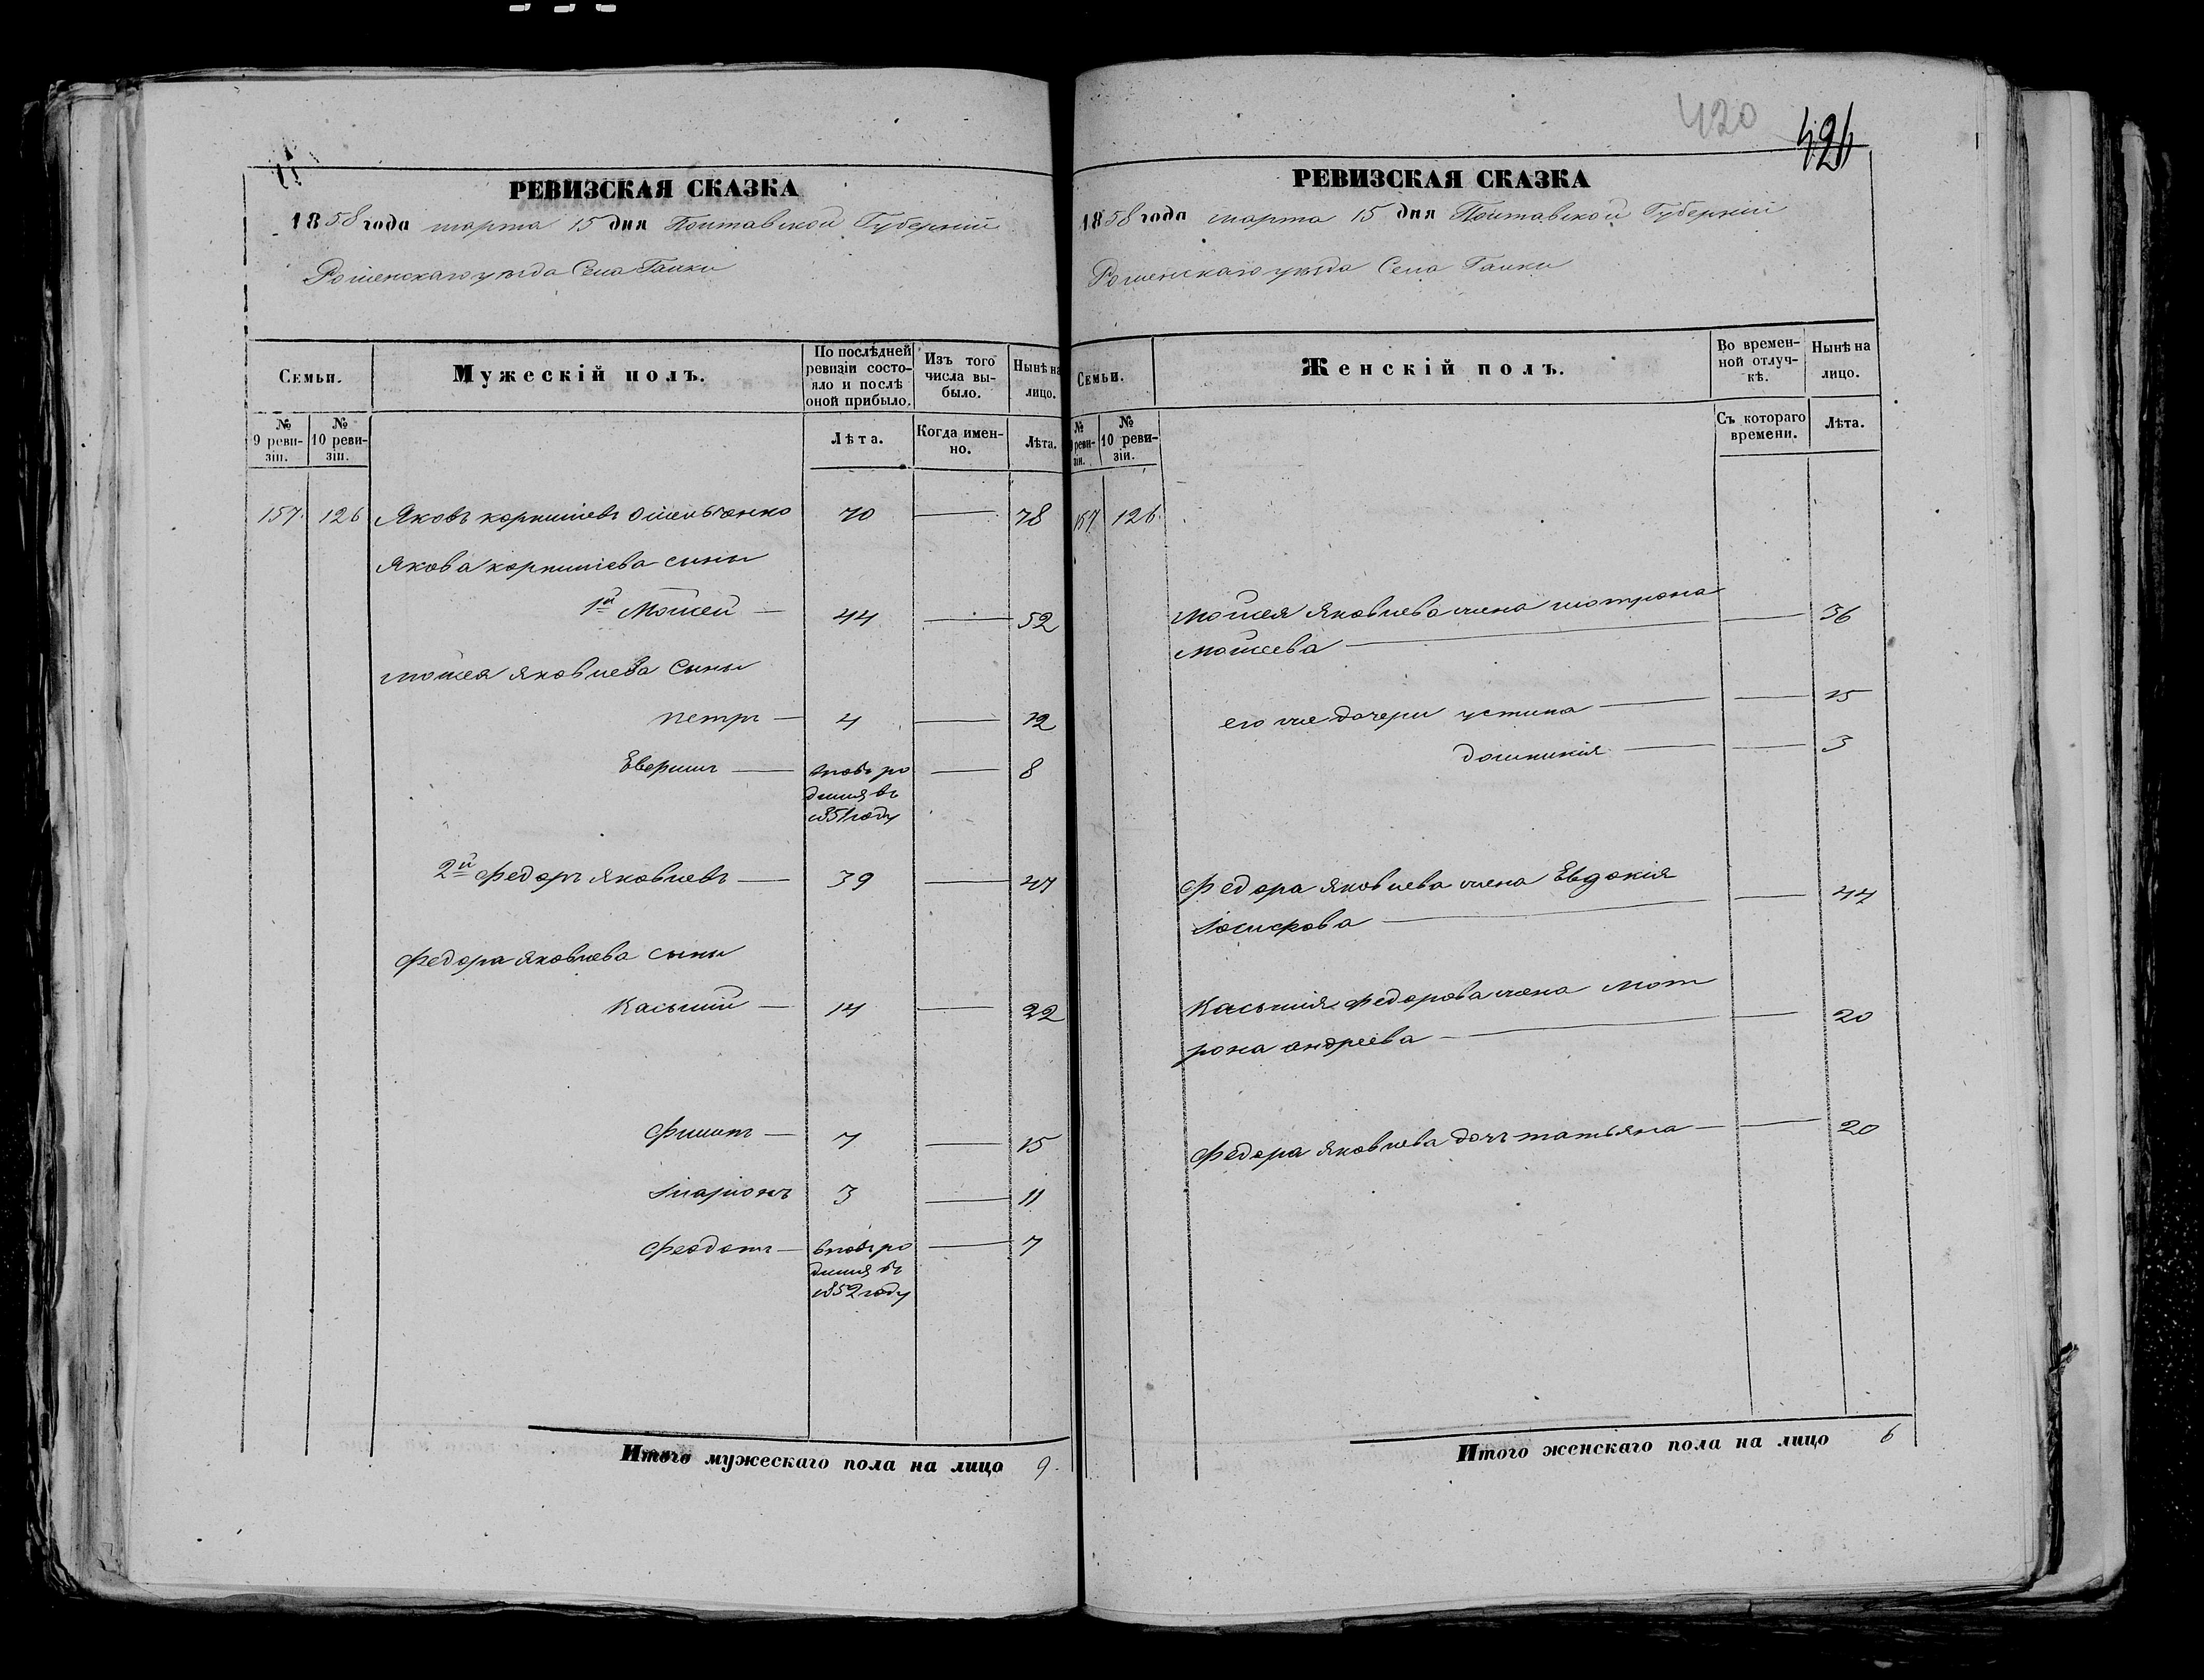 РЕВИЗСКАЯ СКАЗКА
1858 года марта 15 дня Полтавской Губерніи
Роменскаго уезда Села Галки
Семьи.
Мужескій полъ.
По послѣдней ревизіи состояло и послѣ оной прибыло.
Изъ того числа выбыло.
Нынѣ на лицо.
№ 9 ревизіи.
№ 10 ревизіи.
Лѣта.
Когда именно.
Лѣта.
157 126 Яковъ корнилиевъ Омельченко 70 78
Якова корнилиева сины
1й Мойсей 44 52
мойсея яковлева Сыны
петръ 4 12
вновь ро 8
дился въ
1851 году
2й Федоръ яковлевъ 39 47
Федора яковлева сыны
Касьяний 14 22
Филипъ 7 15
Иларионъ 3 11
Феодотъ вновь ро 7
дился въ
1852 году
Итого мужескаго пола на лицо 9.
420
421
РЕВИЗСКАЯ СКАЗКА
1858 года марта 15 дня Полтавской Губерніи
Роменскаго уезда Села Галки
Семьи.
Женскій полъ.
Во временной отлучкѣ.
Нынѣ на лицо.
№ 9 ревизіи.
№ 10 ревизіи.
Съ котораго времени.
Лѣта.
157 126.
мойсея Яковлева жена мотрона 36
мойсеева
его же дочери устина 15
домникія 3
Федора яковлева жена Евдокія 44
Касьянія федорова жена мот 20
рона андреева
Федора яковлева дочь татьяна 20
Итого женскаго пола на лицо 6